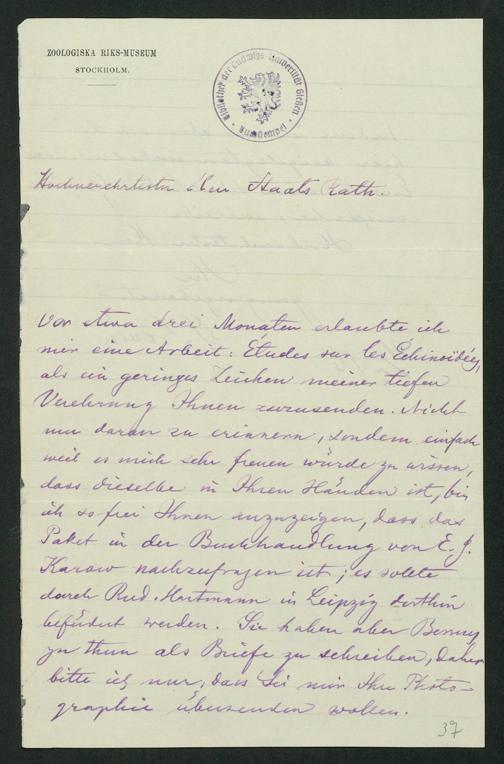 ZOOLOGISKA RIKS-MUSEUM
STOCKHOLM.
Bibliothek der Ludwigs-Universität Giessen
Hochverehrtester Herr Staats Rath
Vor etwa drei Monaten erlaubte ich
mir eine Arbeit: Etudes sur les Echinoïdées,
als ein geringes Zeichen meiner tiefen
Verehrung Ihnen zuzusenden. Nicht
um daran zu erinnern, sondern einfach
weil es mich sehr freuen würde zu wissen,
dass dieselbe in Ihren Händen ist, bin
ich so frei Ihnen anzuzeigen, dass das
Paket in der Buchhandlung von E. J.
Karow nachzufragen ist; es sollte
durch Rud. Hartmann in Leipzig dorthin
befördert werden. Sie haben aber Besseres
zu thun als Briefe zu schreiben, daher
bitte ich nur, dass Sie mir Ihre Photo-
graphie übersenden wollen.
37